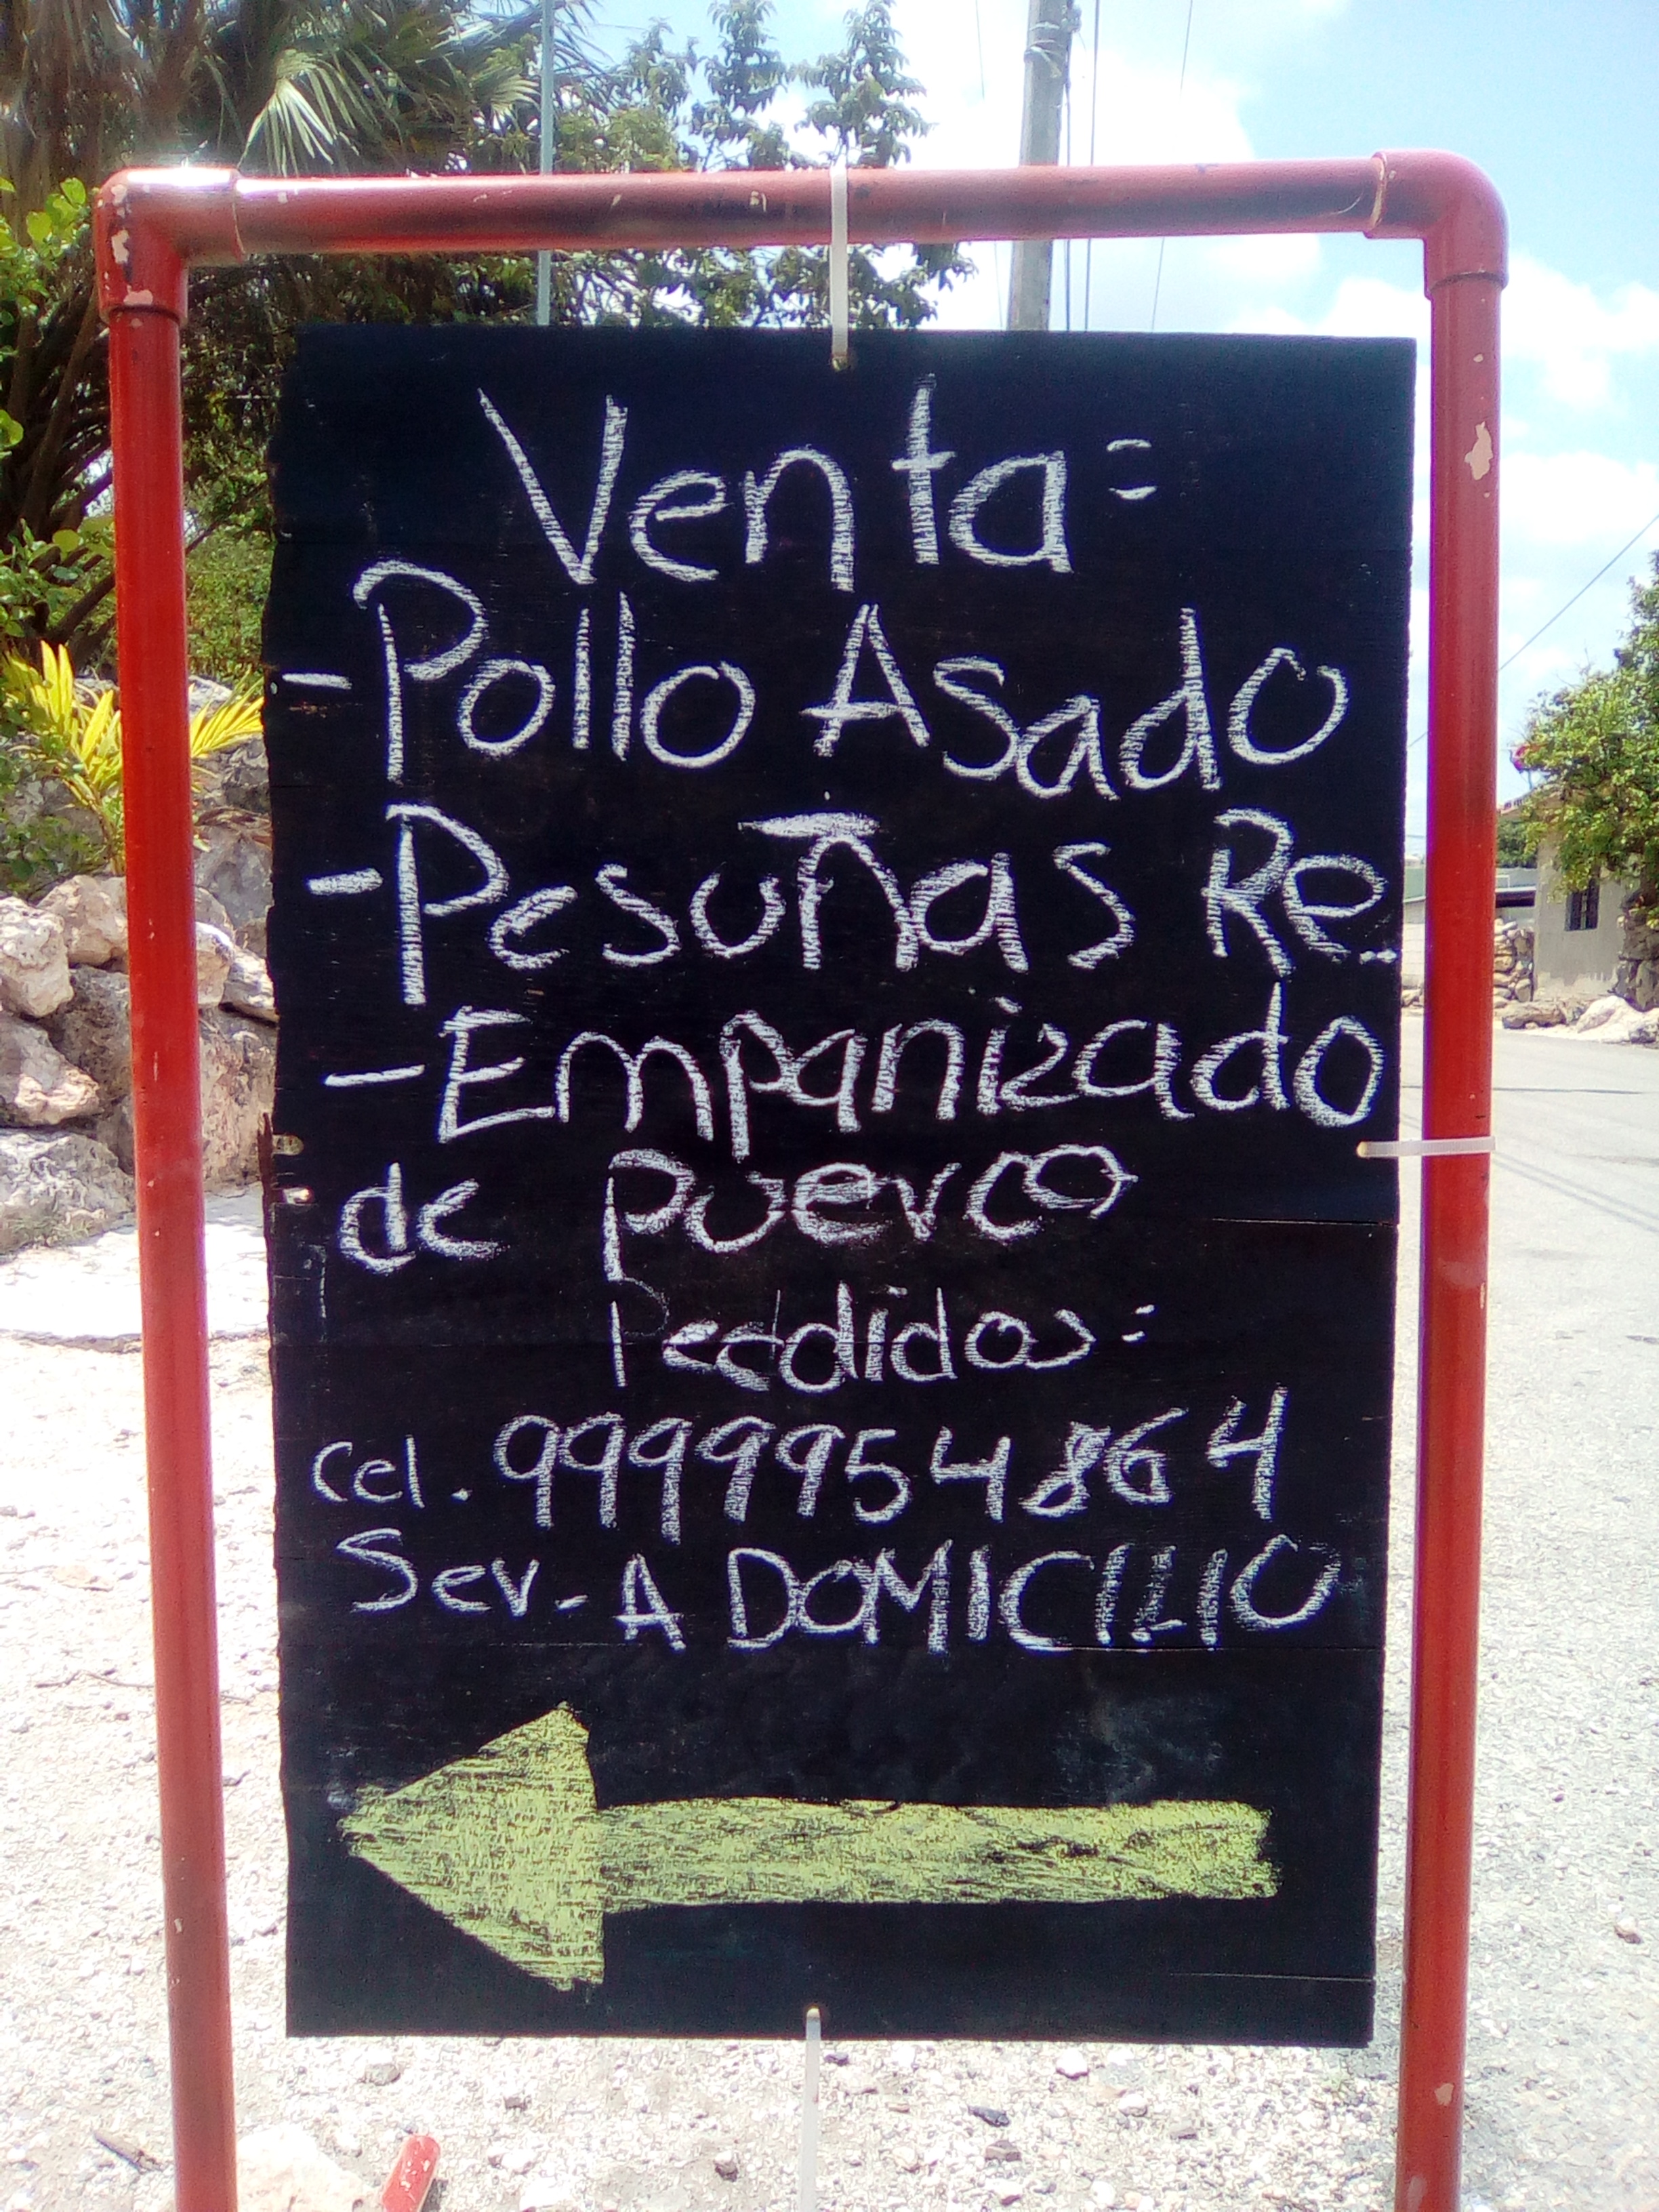 Venta:
- Pollo Asado
- Pesuñas Re.
- Empanizado
de puerco
Peddidos:
Cel. 9999954864
Sev- A DOMICILIO